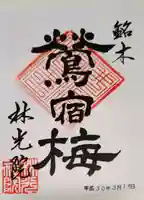 銘木
鶯宿梅
林光院
平成30年3月17日